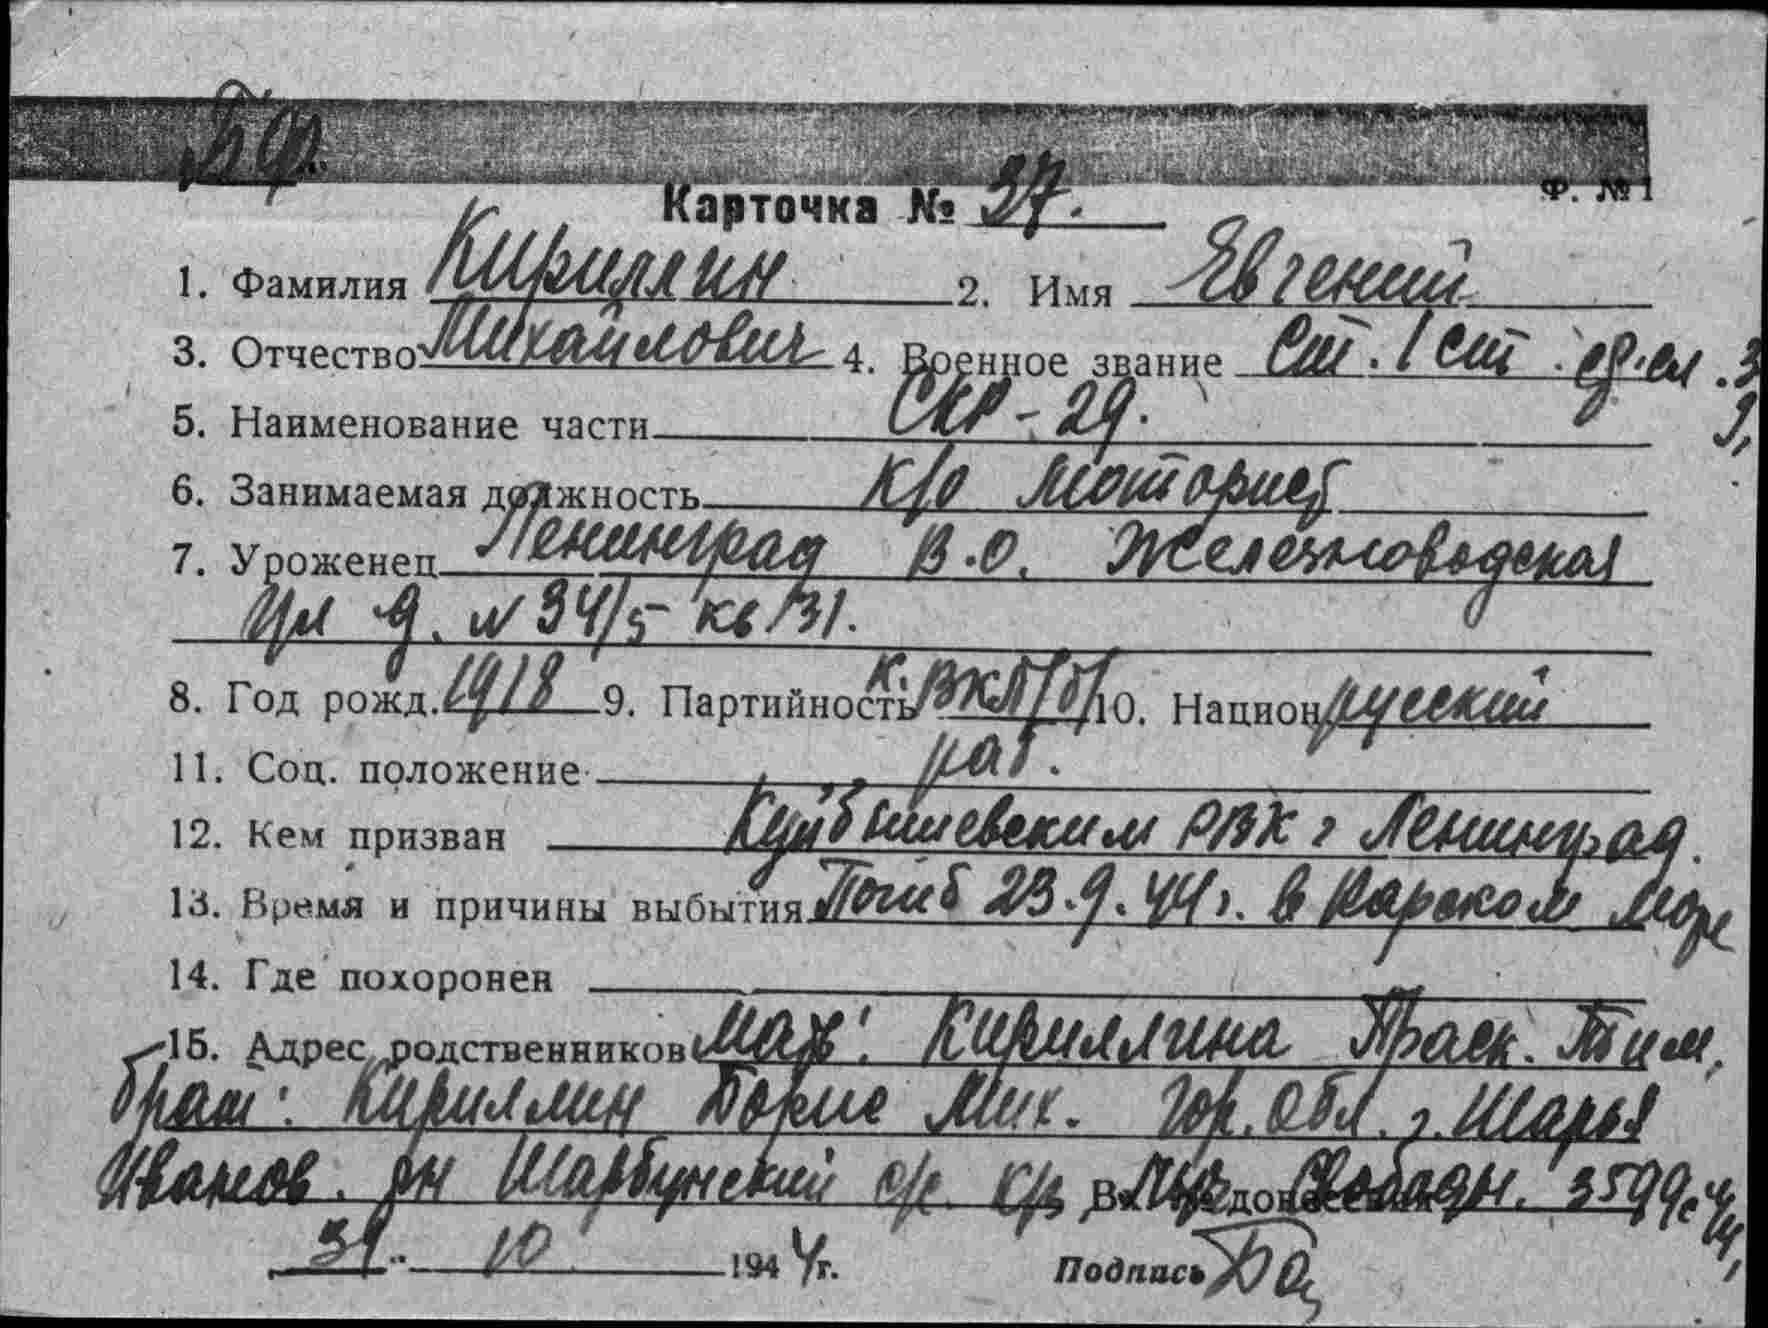 БФ.
Карточка № 37.
Ф. № 1
1. Фамилия Кириллин 2. Имя Евгений
3. Отчество Михайлович 4. Военное звание Ст. 1 ст.
5. Наименование части СКР-29.
6. Занимаемая должность К/о мотористов
7. Уроженец Ленинград В.О. Железноводская
ул д. N 34/5 кв 31.
8. Год рожд. 1918 9. Партийность К. ВКП/б/ 10. Национ русский
11. Соц. положение раб.
12. Кем призван Куйбышевским РВК г Ленинград.
13. Время и причины выбытия Погиб 23.9.44 г. в Карском море
14. Где похоронен
15. Адрес родственников Мать: Кириллина Праск. Тим.
брат: Кириллин Борис Мих. Гор. Обл. г. Шарья
Иванов. рн Шарбунский с/с к/з Луч Свободы. 3599с
31 10 1944 г. Подпись